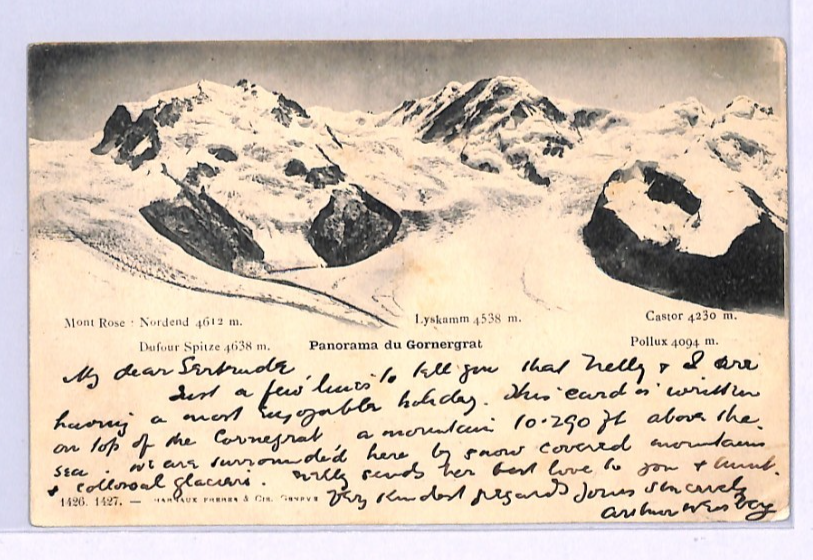 Mont Rose : Nordend 4612 m. Lyskamm 4538 m. Castor 4230 m.
Dufour Spitze 4638 m. Panorama du Gornergrat Pollux 4094 m.
My dear Gertrude
Just a few lines to tell you that Nelly & I are
having a most enjoyable holiday. This card is written
on top of the Cornegrat a mountain 10.290 ft above the
sea. We are surrounded here by snow covered mountains
& collosal glaciers. Nelly sends her best love to you & Aunt.
Very kindest regards Yours sincerely
Arthur
1426. 1427. — FRERES & Cie. GENEVE